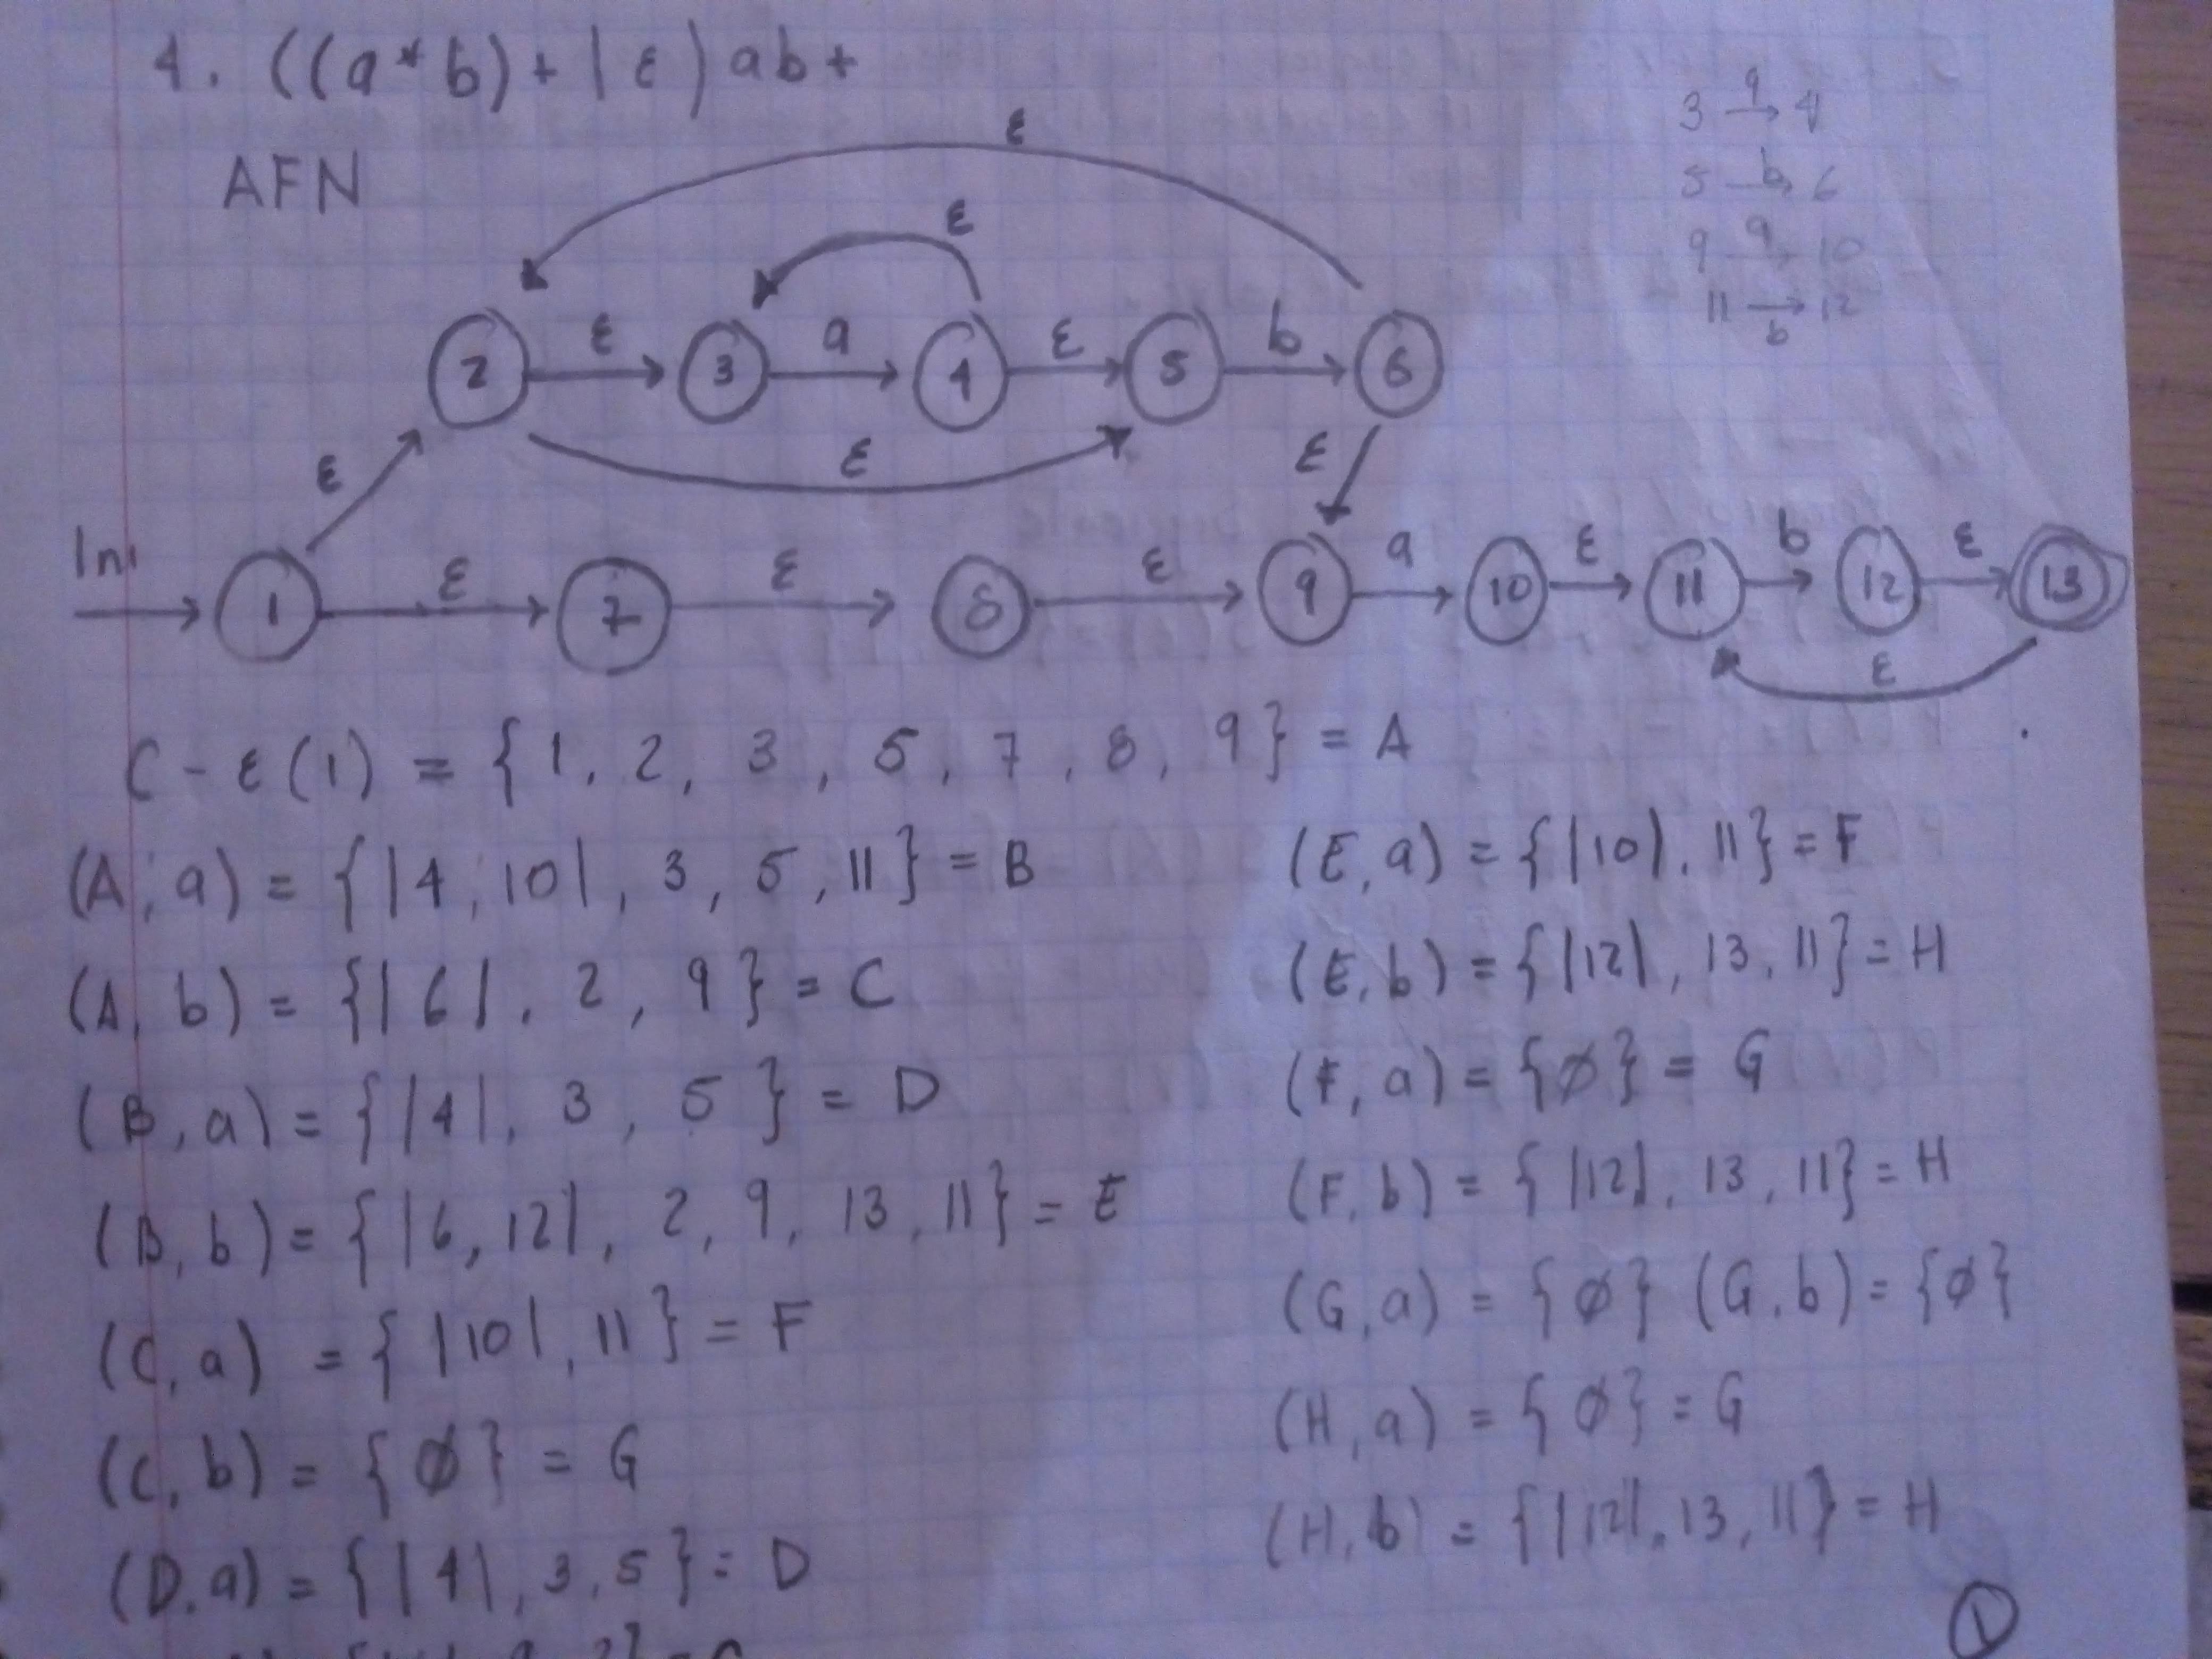 4. ((a*b)+|ε)ab+
AFN
3 a→ 4
5 b→ 6
9 a→ 10
11 →b 12
ε
ε
2 ε 3 a 4 ε 5 b 6
ε
ε
ε
Ini
1 ε 7 ε 8 ε 9 a 10 ε 11 b 12 ε 13
ε
C-ε(1) = {1, 2, 3, 5, 7, 8, 9} = A
(A, a) = {|4, 10|, 3, 5, 11} = B
(A, b) = {|6|, 2, 9} = C
(B, a) = {|4|, 3, 5} = D
(B, b) = {|6, 12|, 2, 9, 13, 11} = E
(C, a) = {|10|, 11} = F
(C, b) = {ø} = G
(D, a) = {|4|, 3, 5} = D
(E, a) = {|10|, 11} = F
(E, b) = {|12|, 13, 11} = H
(F, a) = {ø} = G
(F, b) = {|12|, 13, 11} = H
(G, a) = {ø} (G, b) = {ø}
(H, a) = {ø} = G
(H, b) = {|12|, 13, 11} = H
1